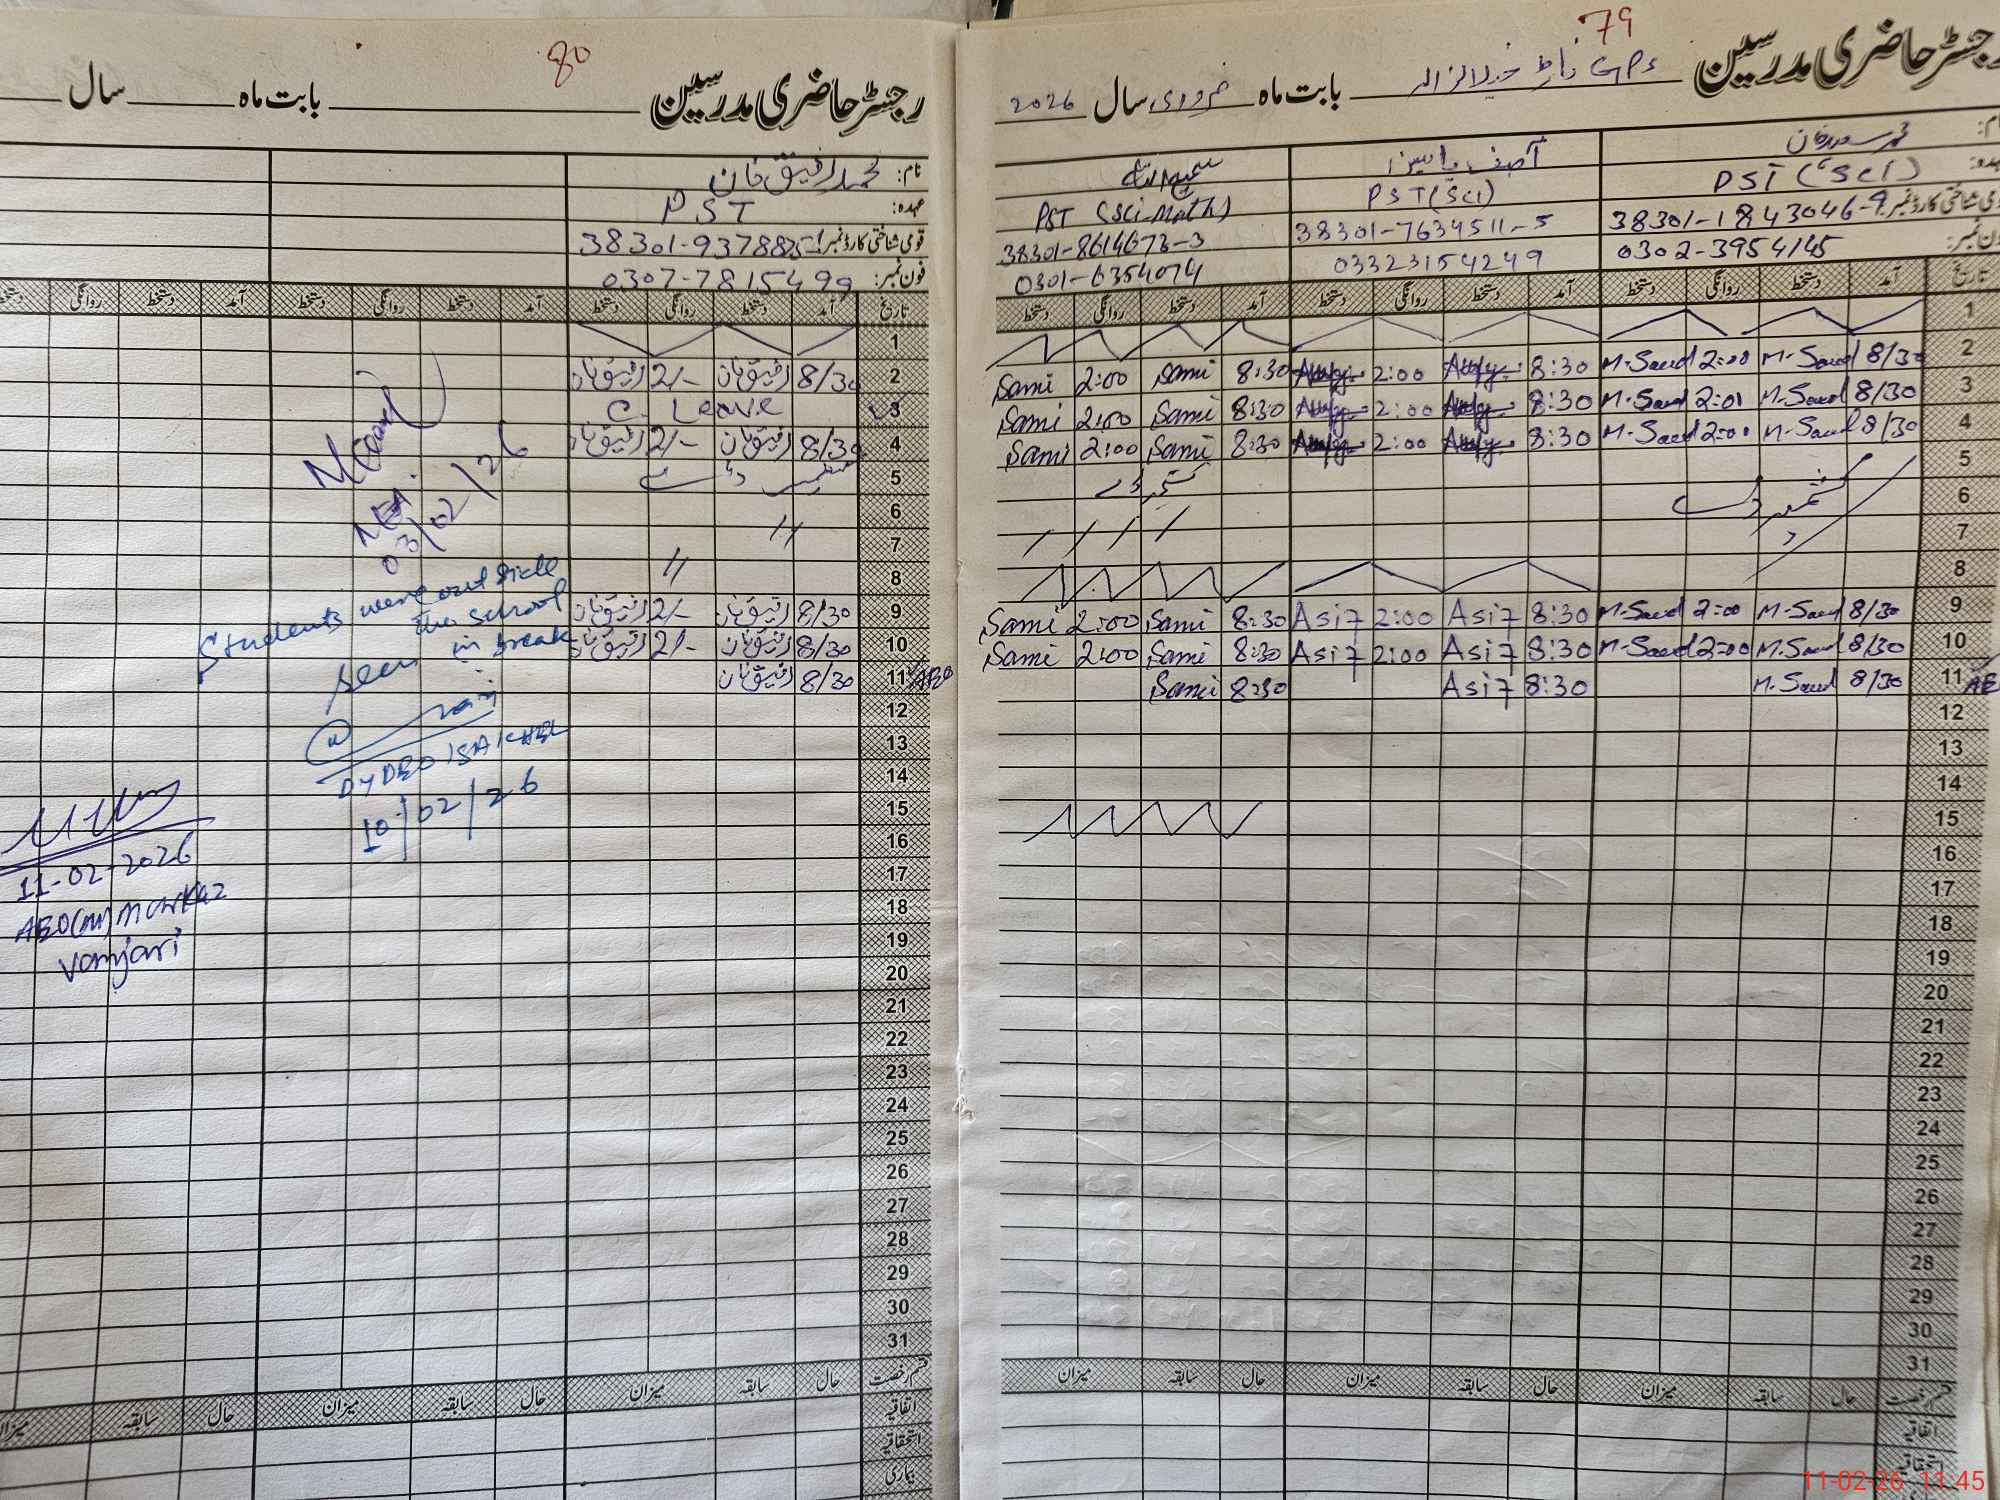 79
رجسٹر حاضری مدرسین GPS بابت ماہ فروری سال 2026
محمد سعید خان
آصف یاسین
سمیع اللہ
PST (Sci)
PST (Sci)
PST (Sci-Math)
38301-1843046-9
38301-7634511-5
38301-8614673-3
0302-3954145
03323154249
0301-6354074
تاریخ آمد دستخط روانگی دستخط آمد دستخط روانگی دستخط آمد دستخط روانگی دستخط
1
2 8/30 M.Saeed 2:00 M.Saeed 8:30 2:00 8:30 Sami 2:00 Sami
3 8/30 M.Saeed 2:01 M.Saeed 8:30 2:00 8:30 Sami 2:00 Sami
4 8/30 M.Saeed 2:00 M.Saeed 8:30 2:00 8:30 Sami 2:00 Sami
5 کشمیر ڈے کشمیر ڈے
6
7
8
9 8/30 M.Saeed 2:00 M.Saeed 8:30 Asif 2:00 Asif 8:30 Sami 2:00 Sami
10 8/30 M.Saeed 2:00 M.Saeed 8:30 Asif 2:00 Asif 8:30 Sami 2:00 Sami
11 8/30 M.Saeed 8:30 Asif 8:30 Sami
12
13
14
15
16
17
18
19
20
21
22
23
24
25
26
27
28
29
30
31
قسم رخصت حال سابقہ میزان حال سابقہ میزان حال سابقہ میزان
اتفاقیہ
استحقاقیہ
80
رجسٹر حاضری مدرسین بابت ماہ سال
نام: محمد رفیق خان
عہدہ: PST
قومی شناختی کارڈ نمبر:
فون نمبر: 0307-7815499
تاریخ آمد دستخط روانگی دستخط آمد دستخط روانگی دستخط آمد دستخط روانگی دستخط
1
2 8/30 رفیق خان 2/- رفیق خان
3 C. Leave
4 8/30 رفیق خان 2/- رفیق خان
5 کشمیر ڈے
6 //
7 //
8
9 8/30 رفیق خان 2/- رفیق خان
10 8/30 رفیق خان 2/- رفیق خان
11 AEO 8/30 رفیق خان
12
13
14
15
16
17
18
19
20
21
22
23
24
25
26
27
28
29
30
31
قسم رخصت حال سابقہ میزان حال سابقہ میزان حال سابقہ میزان
اتفاقیہ
استحقاقیہ
بیماری
MEA.
03/02/26
Students were out side
the school
seen in break
DY DEO ISA KHEL
10/02/26
11-02-2026
AEO(M) Markaz
Vanjari
11-02-26 11:45